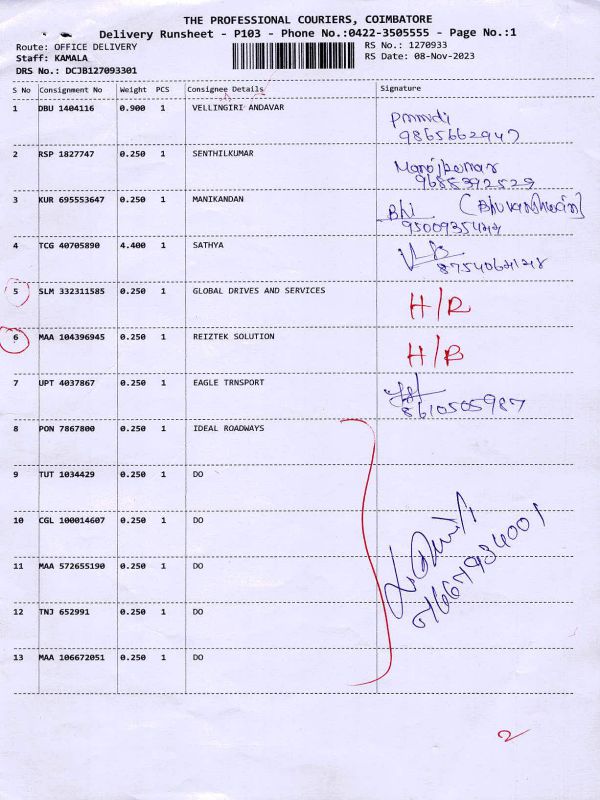 THE PROFESSIONAL COURIERS, COIMBATORE
Delivery Runsheet - P103 - Phone No.:0422-3505555 - Page No.:1
Route: OFFICE DELIVERY RS No.: 1270933
Staff: KAMALA RS Date: 08-Nov-2023
DRS No.: DCJB127093301
S No Consignment No Weight PCS Consignee Details Signature
1 DBU 1404116 0.900 1 VELLINGIRI ANDAVAR
9865662947
2 RSP 1827747 0.250 1 SENTHILKUMAR Manojkumar
9688392529
3 KUR 695553647 0.250 1 MANIKANDAN
4 TCG 40705890 4.400 1 SATHYA
5 SLM 332311585 0.250 1 GLOBAL DRIVES AND SERVICES H/R
6 MAA 104396945 0.250 1 REIZTEK SOLUTION H/B
7 UPT 4037867 0.250 1 EAGLE TRNSPORT
8610505987
8 PON 7867800 0.250 1 IDEAL ROADWAYS
9 TUT 1034429 0.250 1 DO
10 CGL 100014607 0.250 1 DO
11 MAA 572655190 0.250 1 DO
12 TNJ 652991 0.250 1 DO
13 MAA 106672051 0.250 1 DO
2